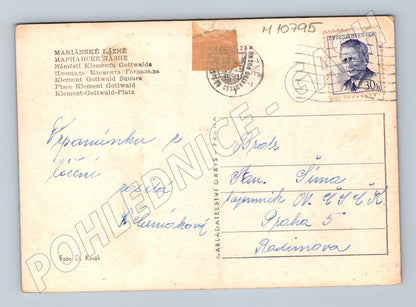 M 10795
MARIÁNSKÉ LÁZNĚ
МАРИАНСКЕ ЛАЗНЕ
Náměstí Klementa Gottwalda
Площадь Клемента Готвальда
Klement Gottwald Square
Place Klement Gottwald
Klement-Gottwald-Platz
ČESKOSLOVENSKO
30h
Vzpomínku z
léčení
posílá
Foto D. Kusák
NAKLADATELSTVÍ ORBYS - PRAHA
Soudr.
Stan. Šíma
tajemník OV. ČSČK.
Praha 5
Radimova
POHLEDNICE -